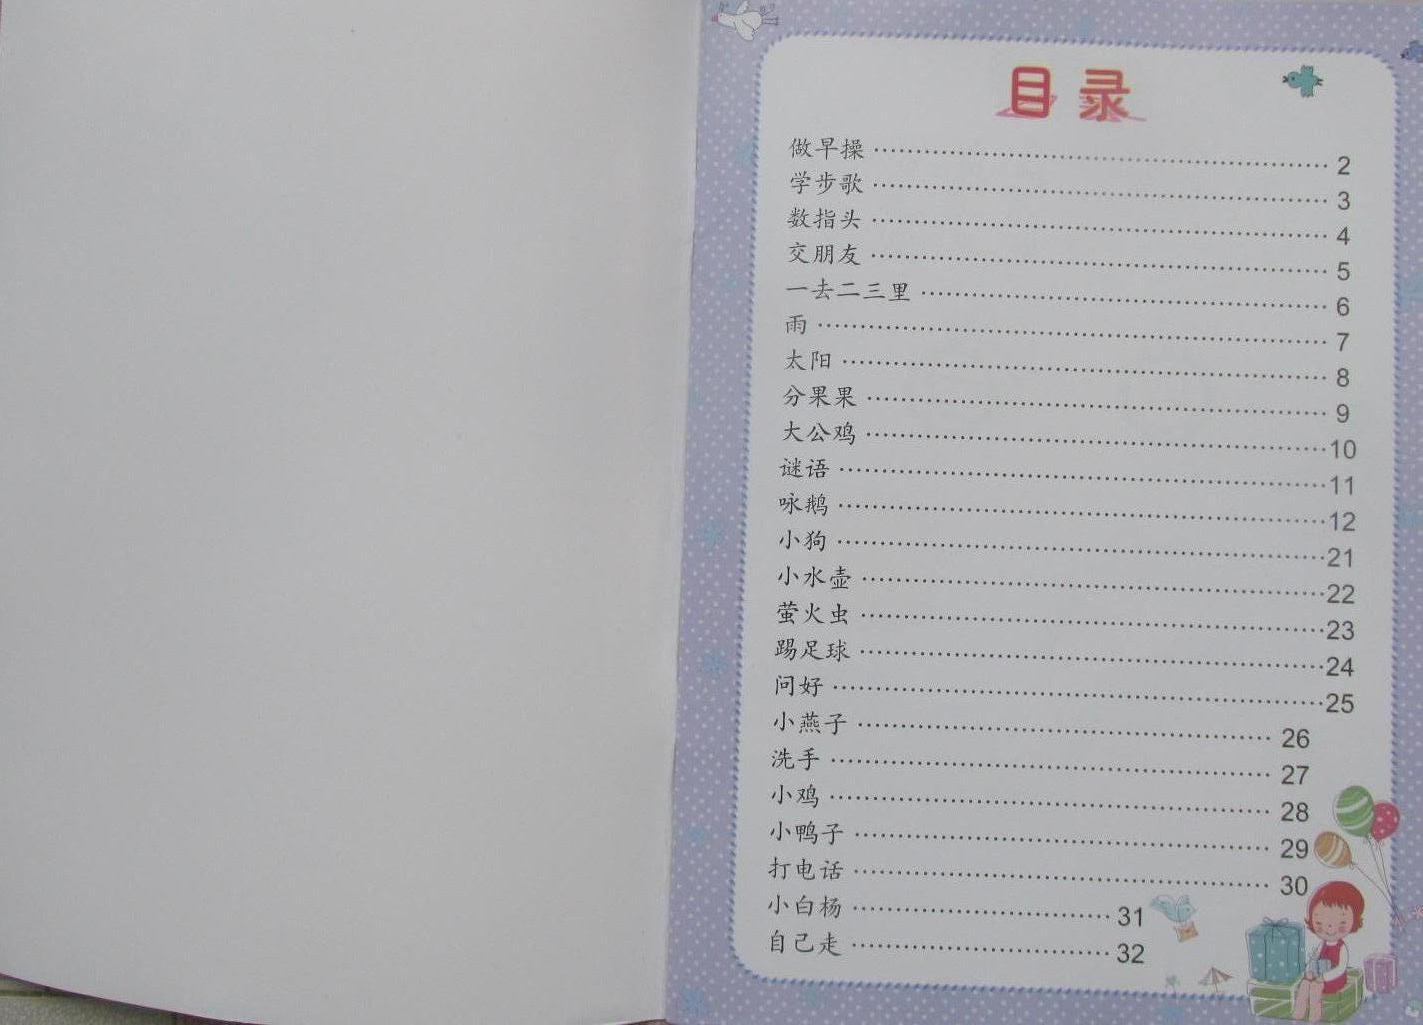 目录
做早操 ……………………………… 2
学步歌 ……………………………… 3
数指头 ……………………………… 4
交朋友 ……………………………… 5
一去二三里 ……………………………… 6
雨 ……………………………… 7
太阳 ……………………………… 8
分果果 ……………………………… 9
大公鸡 ……………………………… 10
谜语 ……………………………… 11
咏鹅 ……………………………… 12
小狗 ……………………………… 21
小水壶 ……………………………… 22
萤火虫 ……………………………… 23
踢足球 ……………………………… 24
问好 ……………………………… 25
小燕子 ……………………………… 26
洗手 ……………………………… 27
小鸡 ……………………………… 28
小鸭子 ……………………………… 29
打电话 ……………………………… 30
小白杨 ……………………………… 31
自己走 ……………………………… 32